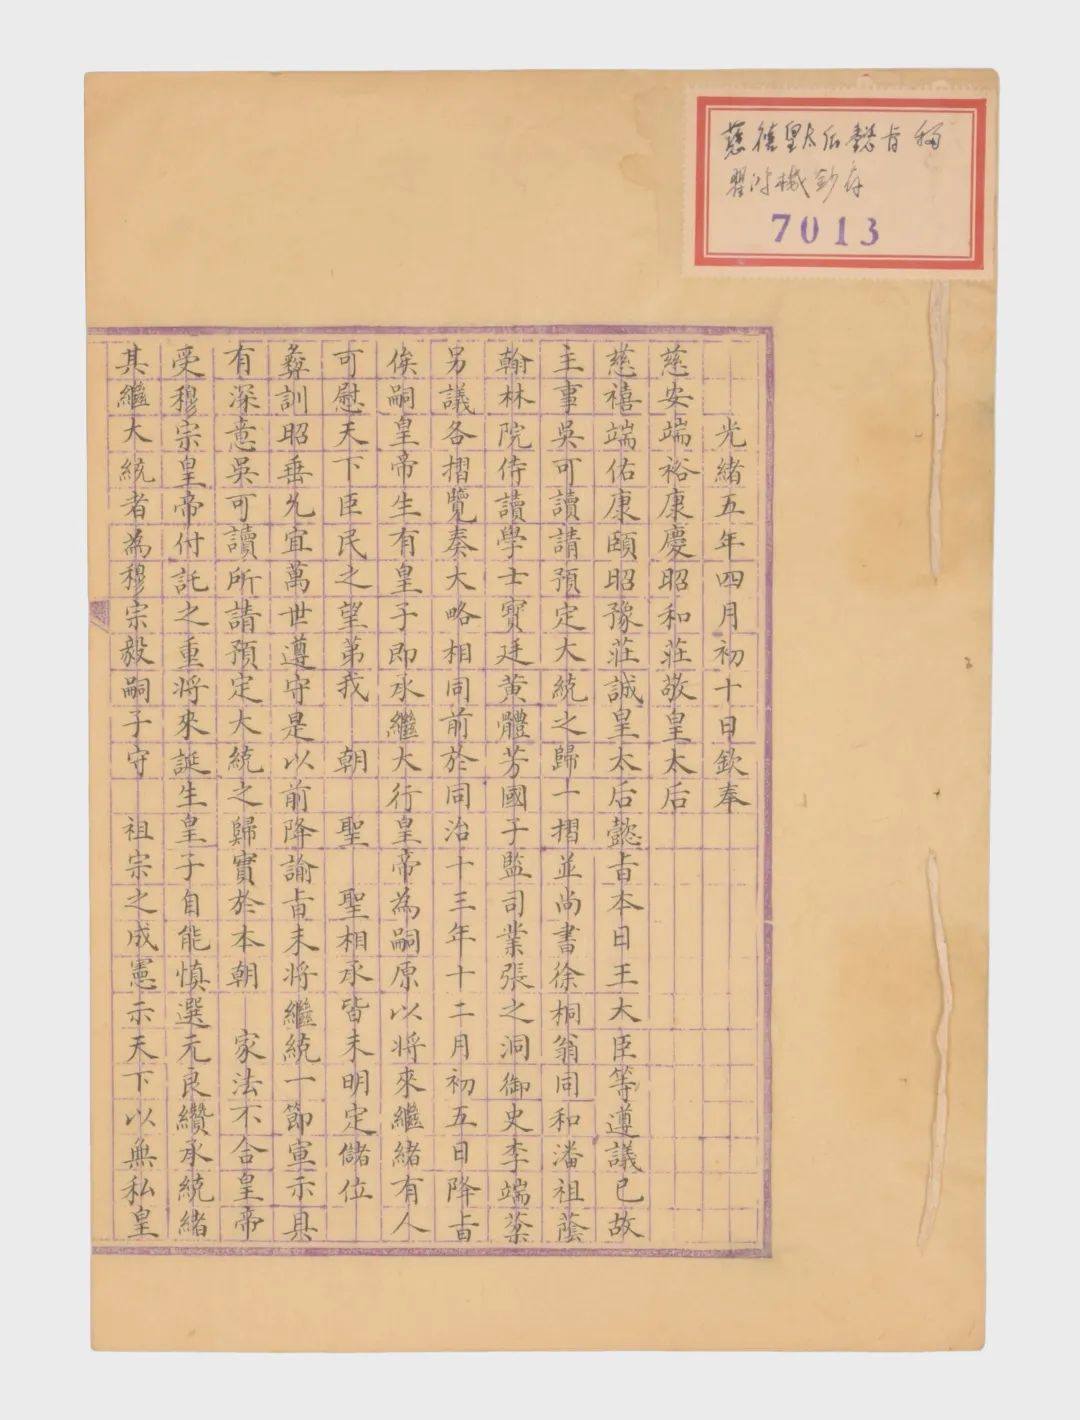 慈禧皇太后懿旨稿
鈔存
7013
光緒五年四月初十日欽奉
慈安端裕康慶昭和莊敬皇太后
慈禧端佑康頤昭豫莊誠皇太后懿旨本日王大臣等遵議已故
主事吳可讀請預定大統之歸一摺並尚書徐桐翁同和潘祖蔭
翰林院侍讀學士寶廷黃體芳國子監司業張之洞御史李端棻
另議各摺覽奏大略相同前於同治十三年十二月初五日降旨
俟嗣皇帝生有皇子即承繼大行皇帝為嗣原以將來繼緒有人
可慰天下臣民之望第我 朝 聖 聖相承皆未明定儲位
彝訓昭垂允宜萬世遵守是以前降諭旨未將繼統一節宣示具
有深意吳可讀所請預定大統之歸實於本朝 家法不合皇帝
受穆宗皇帝付託之重將來誕生皇子自能慎選元良纘承統緒
其繼大統者為穆宗毅嗣子守 祖宗之成憲示天下以無私皇